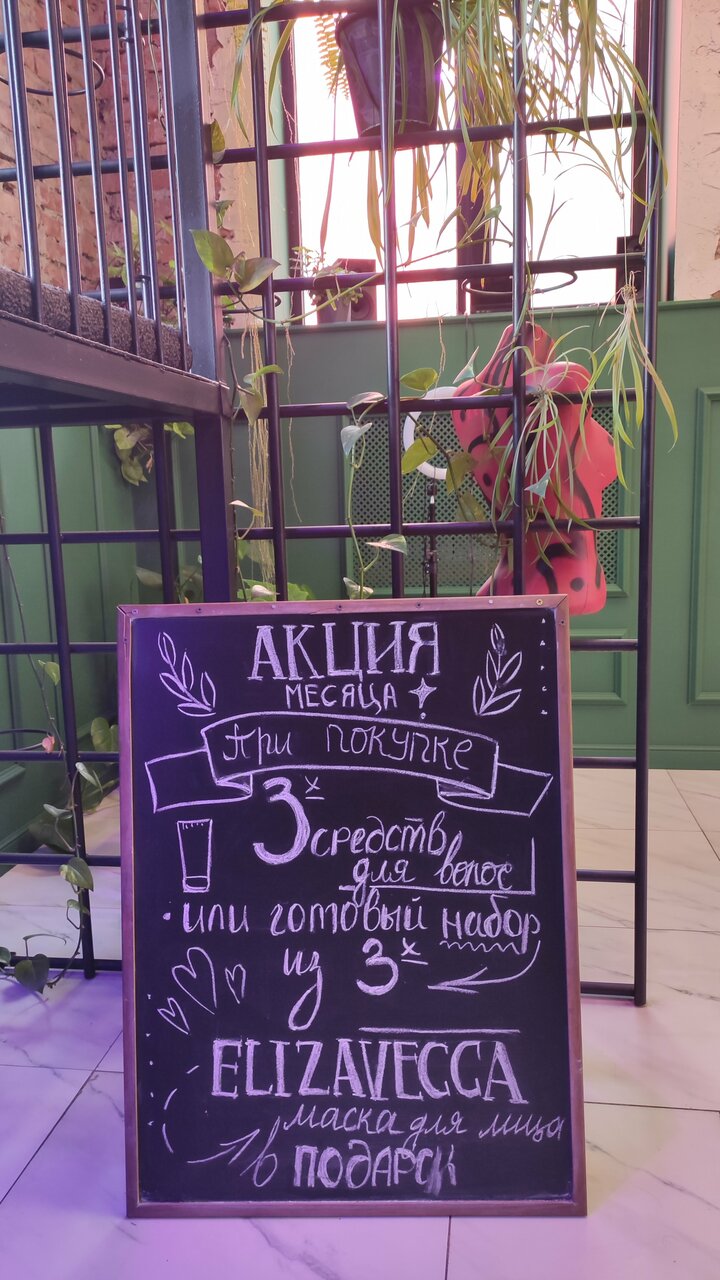 АКЦИЯ
МЕСЯЦА
При покупке
3х средств
для волос
или готовый набор
из 3х
ELIZAVECCA
маска для лица
в ПОДАРОК